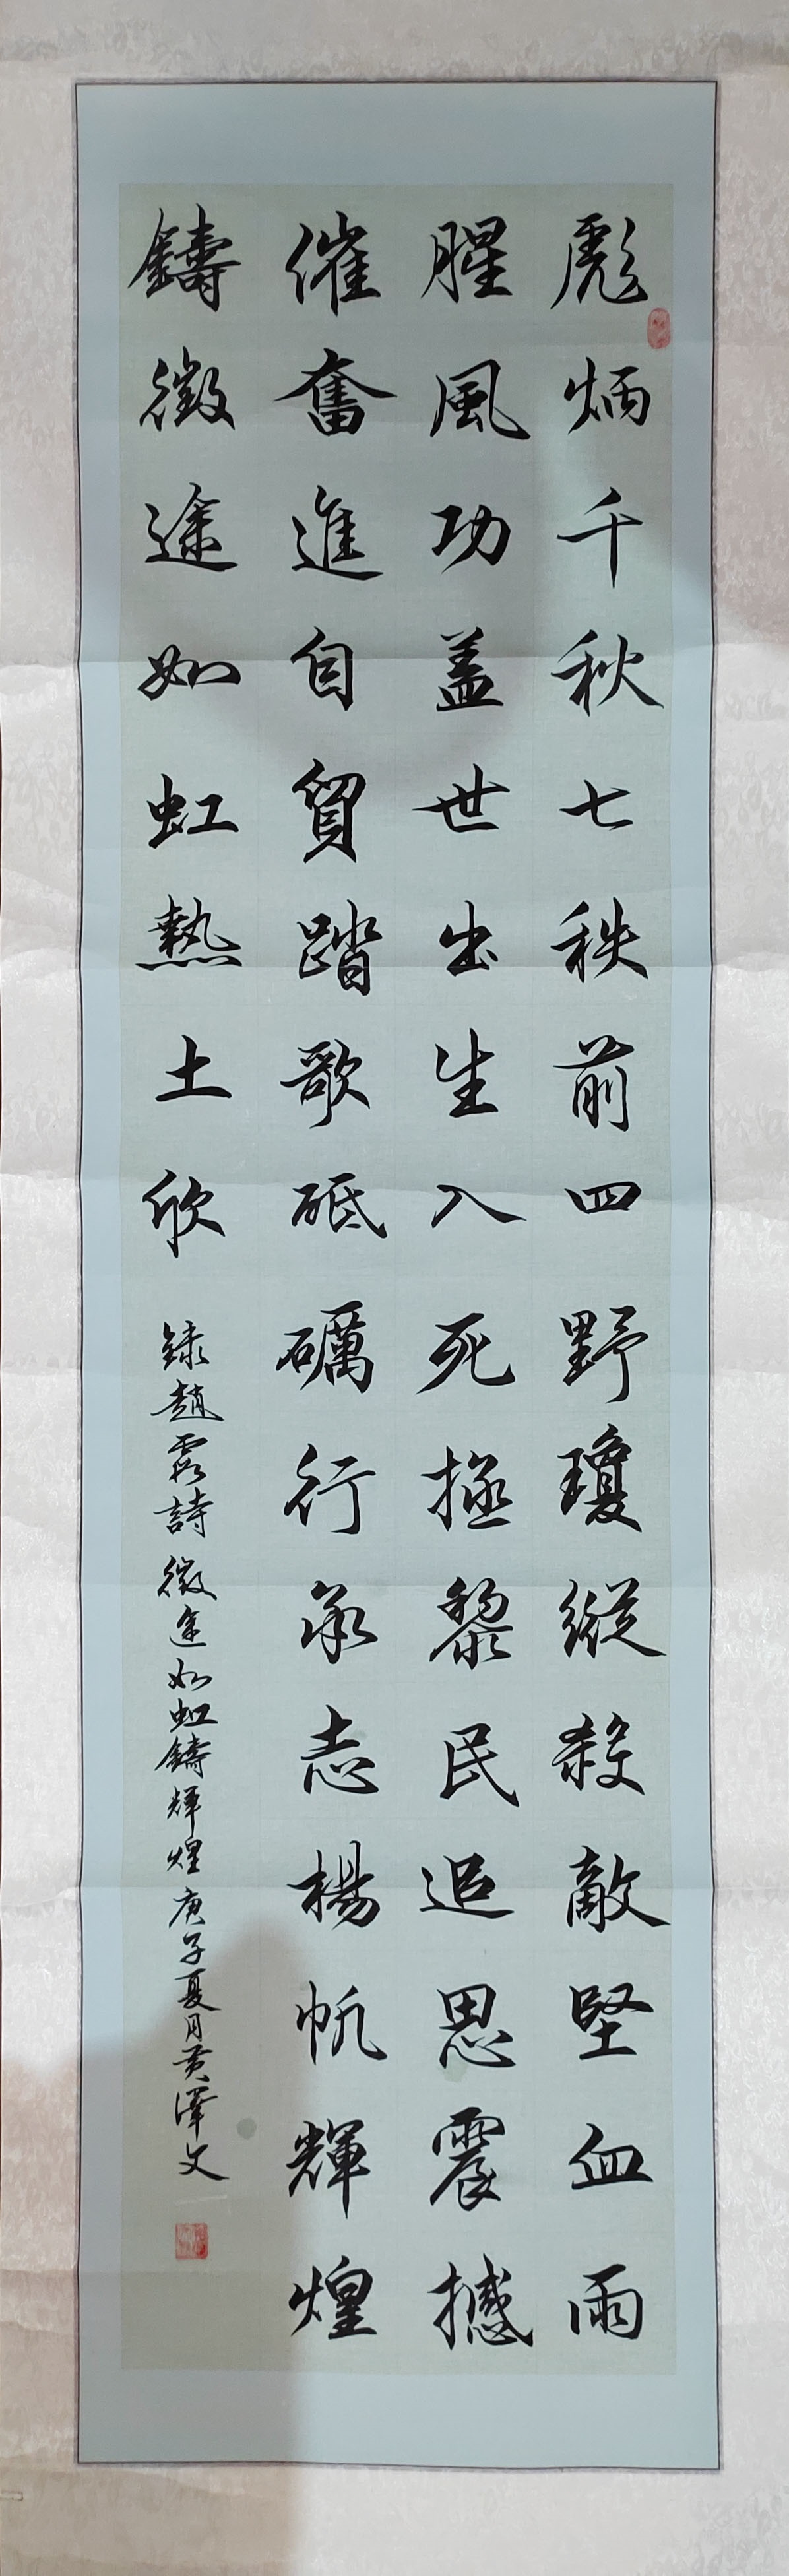 彪炳千秋七秩前四野瓊縱殺敵堅血雨
腥風功蓋世出生入死拯黎民追思震撼
催奮進自貿踏歌砥礪行承志楊帆輝煌
鑄徵途如虹熱土欣
錄趙霞詩徵途如虹鑄輝煌庚子夏月黃澤文